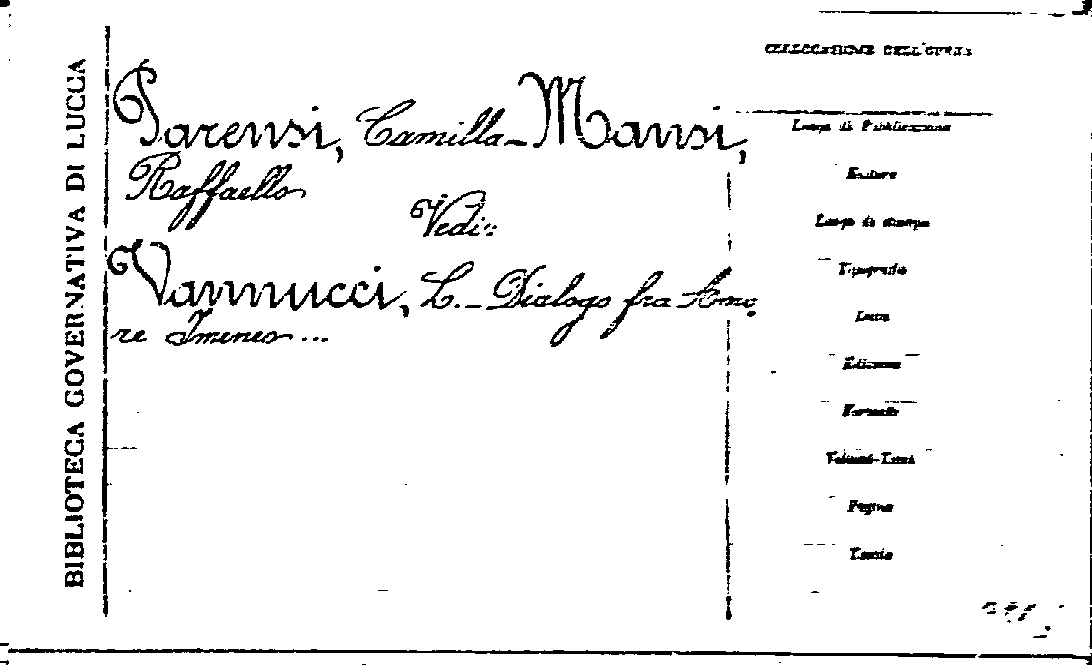 BIBLIOTECA GOVERNATIVA DI LUCCA
Parensi, Camilla - Mansi,
Raffaello
Vedi:
Vannucci, L. - Dialogo fra Amo-
re Imeneo ...
COLLOCAZIONE DELL'OPERA
Luogo di Pubblicazione
Editore
Luogo di stampa
Tipografia
Data
Edizione
Formato
Volumi-Tomi
Pagine
Tavole